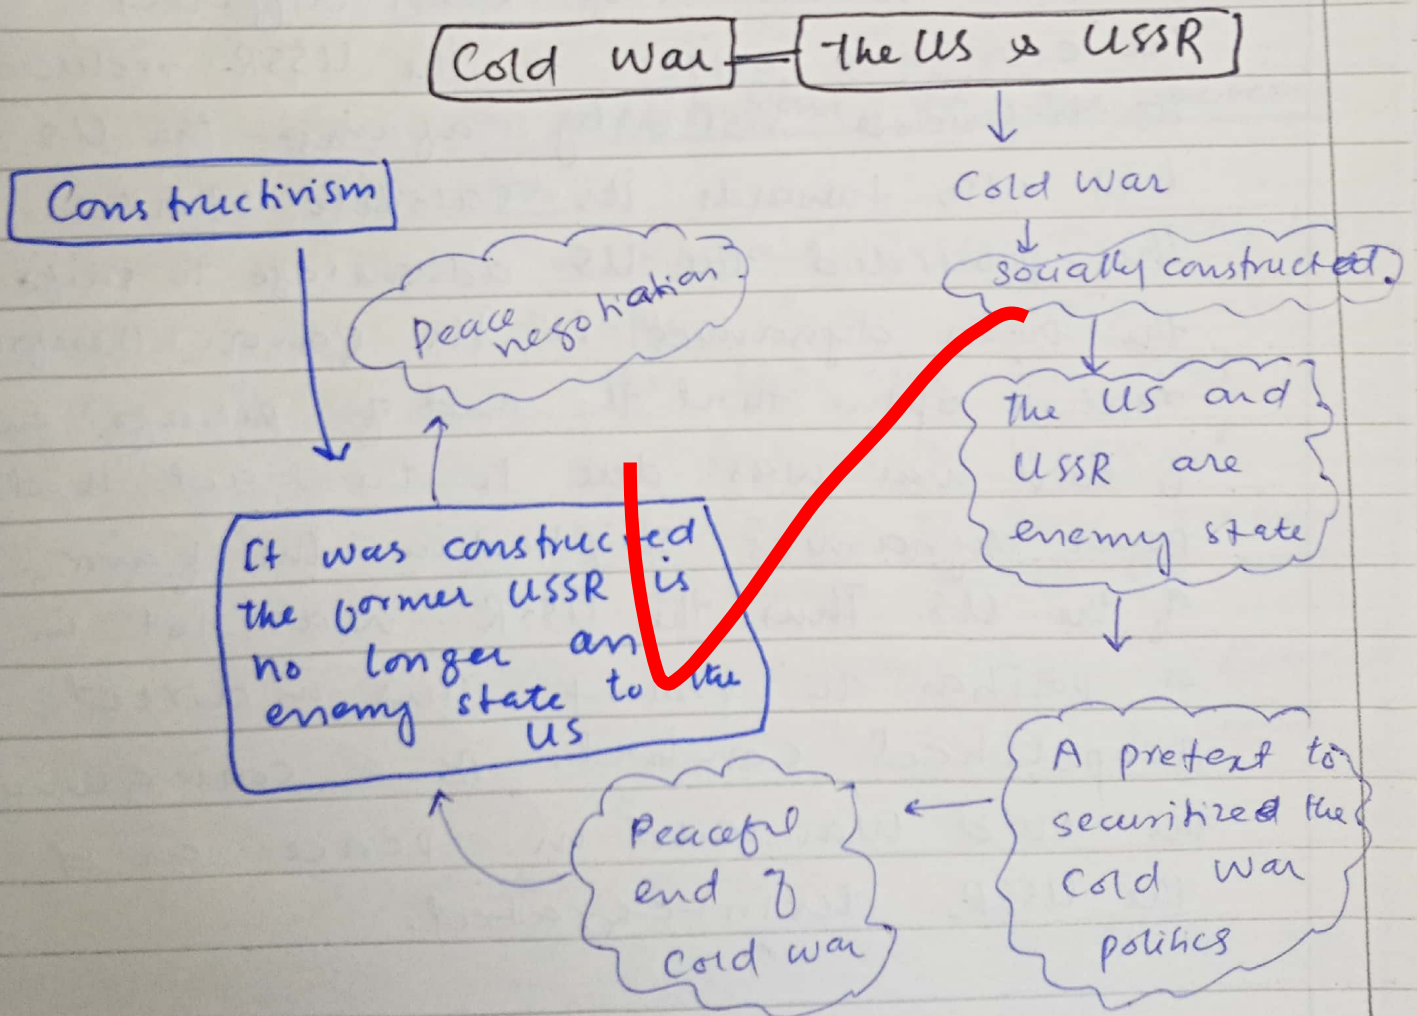 Cold War
the US & USSR
Cold War
socially constructed.
the US and
USSR are
enemy state
A pretext to
securitized the
Cold War
politics
Peaceful
end of
Cold war
Constructivism
It was constructed
the former USSR is
no longer an
enemy state to the
US
Peace
negotiation.